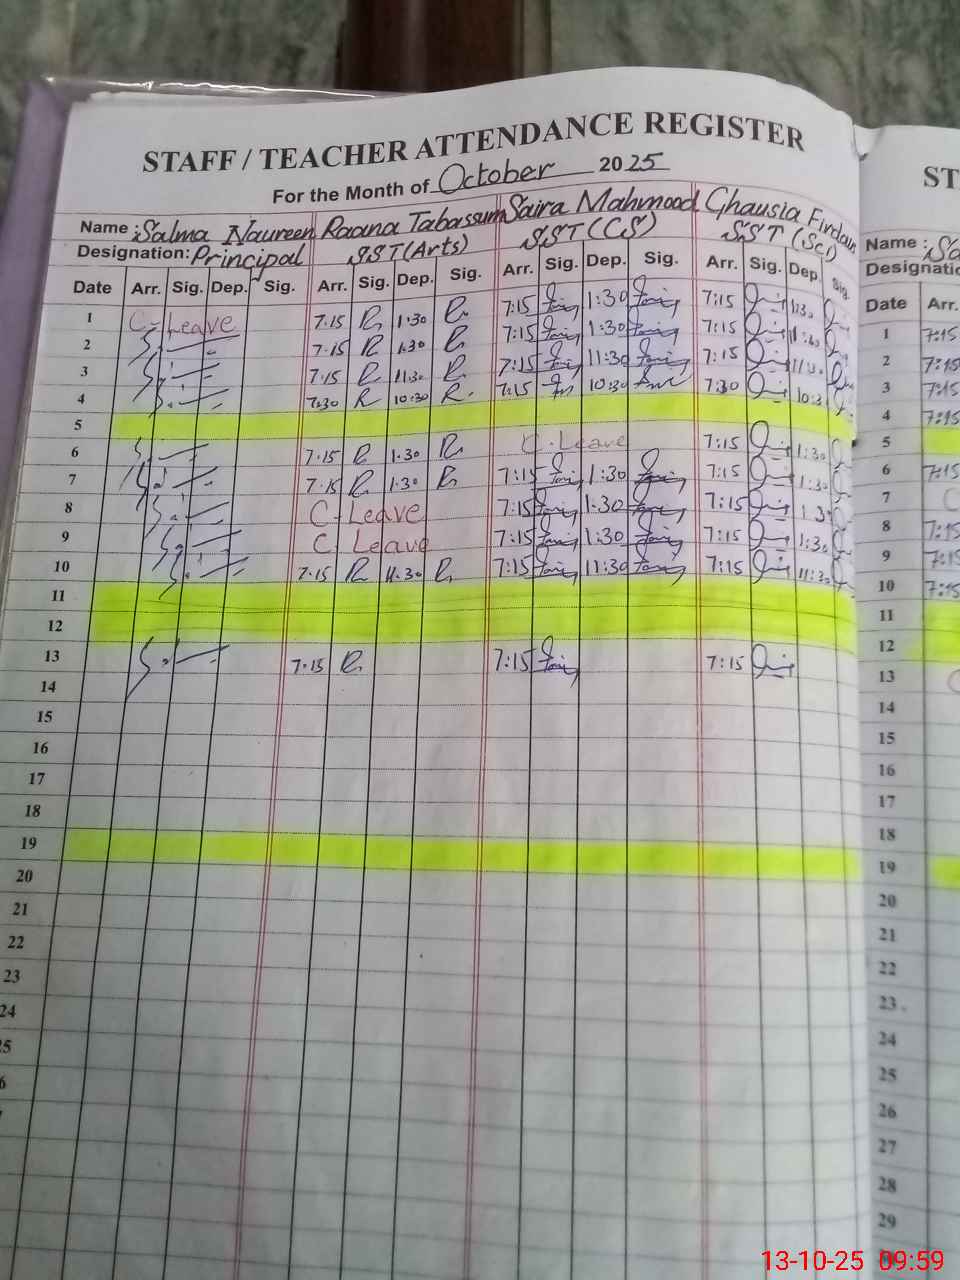 STAFF / TEACHER ATTENDANCE REGISTER
For the Month of October 2025
Name : Salma Naureen Raana Tabassum Saira Mahmood Ghausia Firdaus
Designation: Principal SST (Arts) SST (CS) SST (Sc)
Date Arr. Sig. Dep. Sig. Arr. Sig. Dep. Sig. Arr. Sig. Dep. Sig. Arr. Sig. Dep. Sig.
1 C-Leave 7.15 R 1.30 R 7:15 1:30 7:15 1:30
2 7.15 R 1.30 R 7:15 1:30 7:15 1:30
3 7.15 R 11.30 R 7:15 11:30 7:15
4 7.30 R 10.30 R. 7:15 10:30 7:30
5
6 7.15 R 1.30 R C-Leave 7:15 1:30
7 7.15 R 1.30 R 7:15 1:30 7:15 1:30
8 C-Leave 7:15 1:30 7:15
9 C Leave 7:15 1:30 7:15 1:30
10 7.15 R 11.30 R 7:15 11:30 7:15 11:30
11
12
13 7.15 R 7:15 7:15
14
15
16
17
18
19
20
21
22
23
24
ST
Name :
Date Arr.
1 7:15
2 7:15
3 7:15
4 7:15
5
6 7:15
7
8 7:15
9 7:15
10 7:15
11
12
13
14
15
16
17
18
19
20
21
22
23
24
25
26
27
28
29
13-10-25 09:59